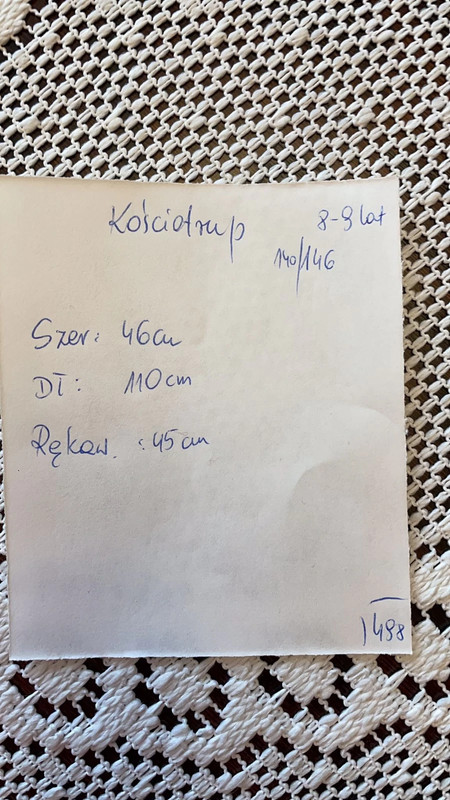 Kościotrup 8-9 lat
140/146
Szer: 46cm
Dł: 110cm
Rękaw. : 45cm
1498